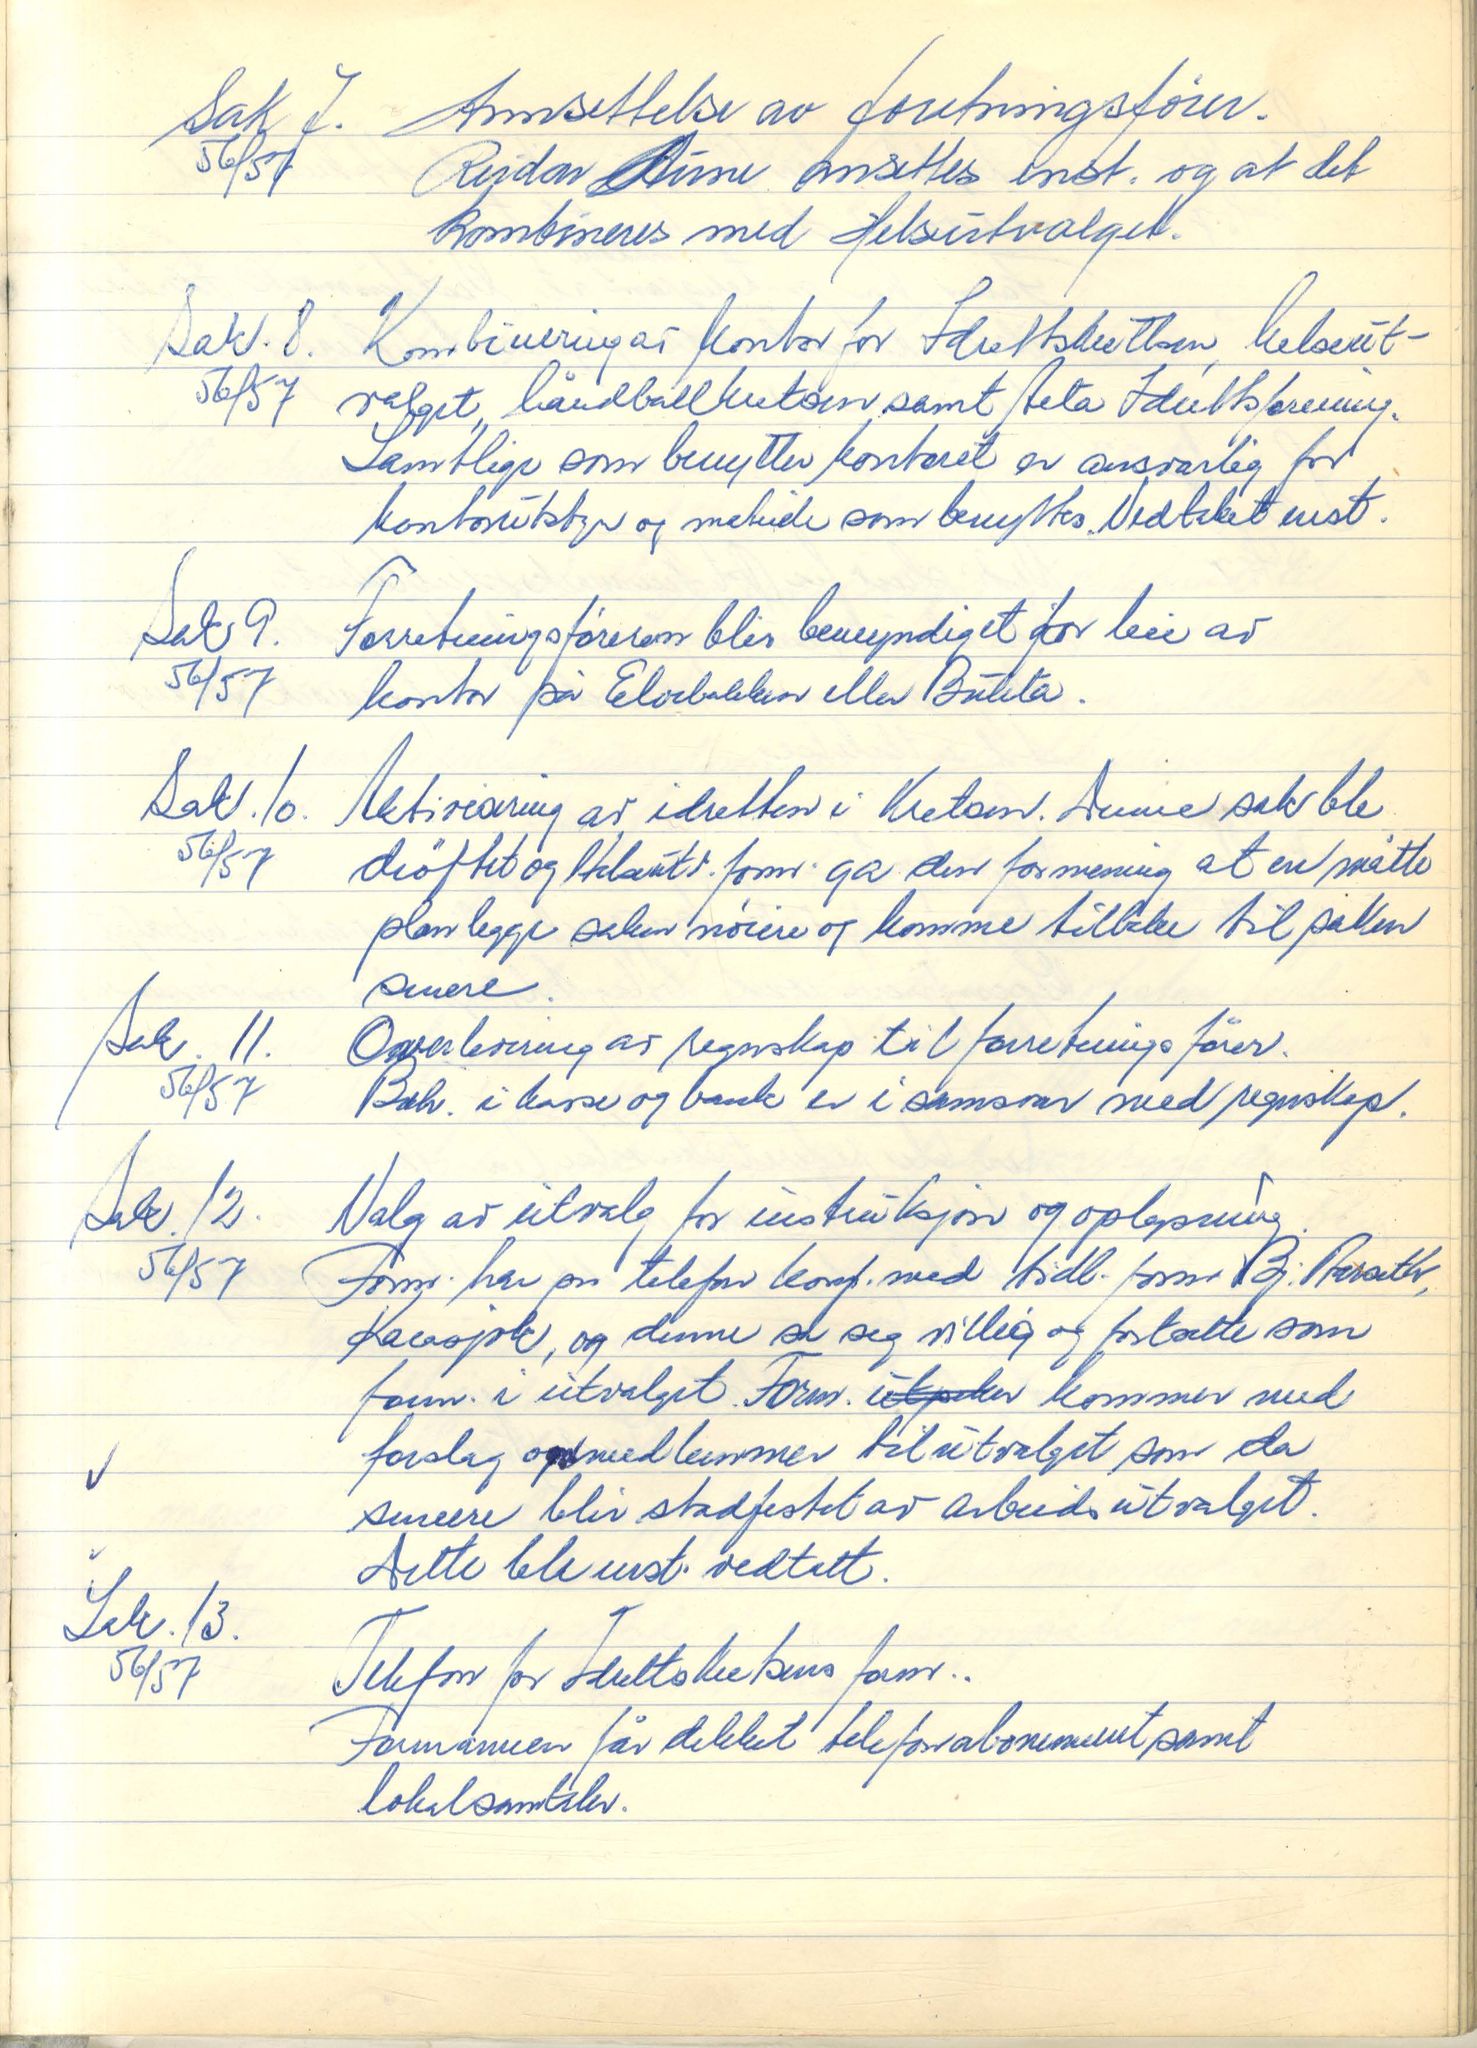 Sak 7. Annsettelse av foretningsförer.
56/57 Reidar ansettes enst. og at det
kombineres med Helseutvalget.
Sak. 8. Kombinering av kontor for Idrettskretsen, helseut-
56/57 valget, håndballkretsen samt Alta Idrettsforening.
Samtlige som benytter kontoret er ansvarlig for
kontorutstyr og som benyttes. Vedtatt enst.
Sak 9. Forretningsföreren blir bemyndiget for leie av
56/57 kontor på Elvebakken eller Bukta.
Sak. 10. Aktivisering av idretten i Kretsen. Denne sak ble
56/57 dröftet og Helseutv. form. ga den formening at en måtte
planlegge saken nöiere og komme tilbake til saken
senere.
Sak. 11. Overlevering av regnskap til forretningsförer.
56/57 Beh. i kasse og bank er i samsvar med regnskap.
Sak. 12. Valg av utvalg for instruksjon og oplysning.
56/57 Form. har pr telefon konf. med tidl. form Bj.
Karasjok, og denne sa seg villig og fortsette som
form. i utvalget. Form. utpeker kommer med
forslag medlemmer til utvalget som da
senere blir stadfestet av arbeidsutvalget.
Dette ble enst. vedtatt.
Sak. 13.
56/57 Telefon for Idrettskretsens form..
Formannen får dekket telefonabonnement samt
lokalsamtaler.